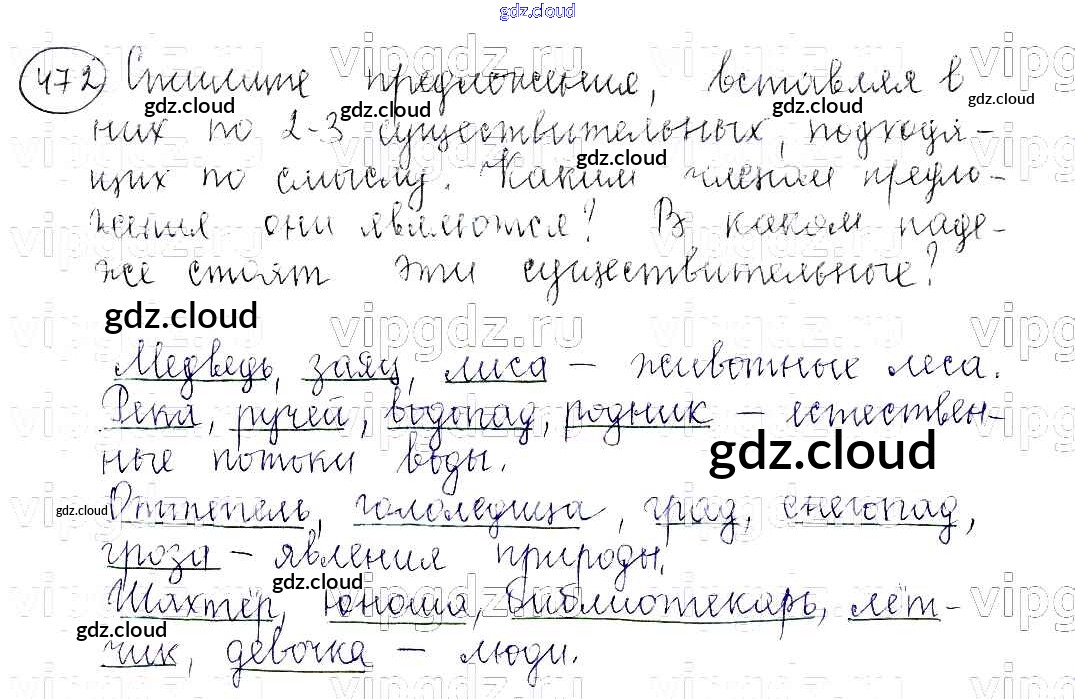 gdz.cloud
472 Спишите предложения, вставляя в
них по 2-3 существительных, подходя-
щих по смыслу. Каким членом предло-
жения они являются? В каком паде-
же стоят эти существительные?
Медведь, заяц, лиса – животные леса.
Река, ручей, водопад, родник – естествен-
ные потоки воды.
Оттепель, гололедица, град, снегопад,
гроза – явления природы.
Шахтёр, юноша, библиотекарь, лёт-
чик, девочка – люди.